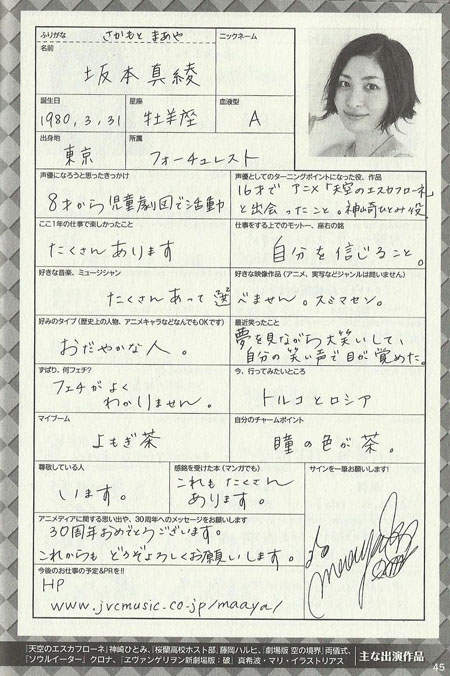 ふりがな さかもと まあや
ニックネーム
名前
坂本真綾
誕生日
1980,3,31
星座
牡羊座
血液型
A
出身地
東京
所属
フォーチュレスト
声優になろうと思ったきっかけ
8才から児童劇団で活動
声優としてのターニングポイントになった役、作品
16才でアニメ「天空のエスカフローネ」
と出会ったこと。神崎ひとみ役
ここ1年の仕事で楽しかったこと
たくさんあります
仕事をする上でのモットー、座右の銘
自分を信じること。
好きな音楽、ミュージシャン
好きな映像作品(アニメ、実写などジャンルは問いません)
たくさんあって選べません。スミマセン。
好みのタイプ(歴史上の人物、アニメキャラなどなんでもOKです)
おだやかな人。
最近笑ったこと
夢を見ながら大笑いして、
自分の笑い声で目が覚めた。
ずばり、何フェチ?
フェチがよく
わかりません。
今、行ってみたいところ
トルコとロシア
マイブーム
よもぎ茶
自分のチャームポイント
瞳の色が茶。
尊敬している人
います。
感銘を受けた本(マンガでも)
これもたくさん
あります。
サインを一筆お願いします!
maaya
アニメディアに関する思い出や、30周年へのメッセージをお願いします
30周年おめでとうございます。
これからもどうぞよろしくお願いします。
今後のお仕事の予定&PRを!!
HP
www.jvcmusic.co.jp/maaya/
『天空のエスカフローネ』神崎ひとみ、『桜蘭高校ホスト部』藤岡ハルヒ、『劇場版 空の境界』両儀式、
『ソウルイーター』クロナ、『ヱヴァンゲリヲン新劇場版:破』真希波・マリ・イラストリアス
主な出演作品
45